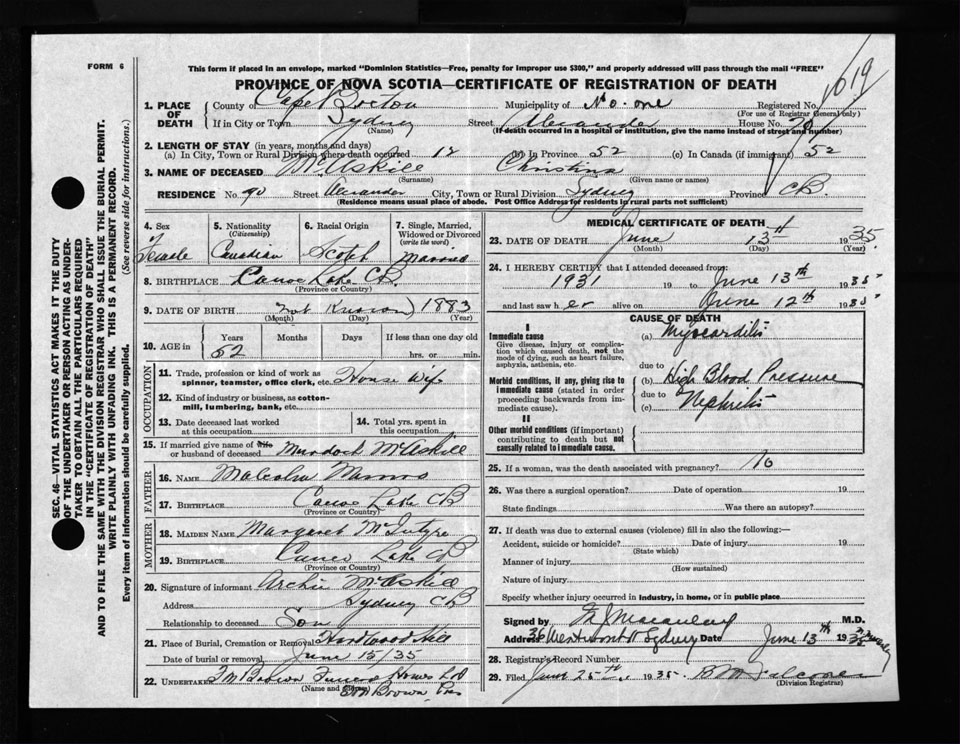 FORM 6
This form if placed in an envelope, marked "Dominion Statistics—Free, penalty for improper use $300," and properly addressed will pass through the mail "FREE"
PROVINCE OF NOVA SCOTIA—CERTIFICATE OF REGISTRATION OF DEATH
1619
1. PLACE OF DEATH County of Cape Breton Municipality of No. one Registered No.
(For use of Registrar General only)
If in City or Town Sydney Street Alexander House No. 90
(Name) (If death occurred in a hospital or institution, give the name instead of street and number)
2. LENGTH OF STAY (in years, months and days)
(a) In City, Town or Rural Division where death occurred 12 (b) In Province 52 (c) In Canada (if immigrant) 52
3. NAME OF DECEASED McAskill Christina
(Surname) (Given name or names)
RESIDENCE No. 90 Street Alexander City, Town or Rural Division Sydney Province CB.
(Residence means usual place of abode. Post Office Address for residents in rural parts not sufficient)
SEC. 46—VITAL STATISTICS ACT MAKES IT THE DUTY
OF THE UNDERTAKER OR PERSON ACTING AS UNDER-
TAKER TO OBTAIN ALL THE PARTICULARS REQUIRED
IN THE "CERTIFICATE OF REGISTRATION OF DEATH"
AND TO FILE THE SAME WITH THE DIVISION REGISTRAR WHO SHALL ISSUE THE BURIAL PERMIT.
WRITE PLAINLY WITH UNFADING INK. THIS IS A PERMANENT RECORD.
Every item of information should be carefully supplied. (See reverse side for instructions.)
4. Sex 5. Nationality (Citizenship) 6. Racial Origin 7. Single, Married, Widowed or Divorced (write the word)
Female Canadian Scotch Married
8. BIRTHPLACE Canoe Lake CB.
(Province or Country)
9. DATE OF BIRTH Not Known 1883
(Month) (Day) (Year)
10. AGE in Years Months Days If less than one day old
52 hrs. or min.
OCCUPATION
11. Trade, profession or kind of work as spinner, teamster, office clerk, etc. House Wife
12. Kind of industry or business, as cotton-mill, lumbering, bank, etc.
13. Date deceased last worked at this occupation 14. Total yrs. spent in this occupation
15. If married give name of wife or husband of deceased Murdoch McAskill
FATHER
16. NAME Malcolm Munro
17. BIRTHPLACE Canoe Lake CB
(Province or Country)
MOTHER
18. MAIDEN NAME Margaret McIntyre
19. BIRTHPLACE Canoe Lake CB
(Province or Country)
20. Signature of informant Archie McAskill
Address Sydney CB
Relationship to deceased Son
21. Place of Burial, Cremation or Removal Hardwood Hill
Date of burial or removal June 15/35
22. UNDERTAKER Funeral Homes Ltd
(Name and address)
Brown, Pres
MEDICAL CERTIFICATE OF DEATH
23. DATE OF DEATH June 13th 1935
(Month) (Day) (Year)
24. I HEREBY CERTIFY that I attended deceased from:
1931 19 to June 13th 1935
and last saw her alive on June 12th 1935
CAUSE OF DEATH
I
Immediate cause (a) Myocarditis
Give disease, injury or complication which caused death, not the mode of dying, such as heart failure, asphyxia, asthenia, etc.
due to
Morbid conditions, if any, giving rise to immediate cause (stated in order proceeding backwards from immediate cause).
(b) High Blood Pressure
due to
(c) Nephritis
II
Other morbid conditions (if important) contributing to death but not causally related to immediate cause.
25. If a woman, was the death associated with pregnancy? No
26. Was there a surgical operation? Date of operation 19
State findings Was there an autopsy?
27. If death was due to external causes (violence) fill in also the following:—
Accident, suicide or homicide? Date of injury 19
(State which)
Manner of injury
(How sustained)
Nature of injury
Specify whether injury occurred in industry, in home, or in public place
Signed by Macaulay M.D.
Address 36 Wentworth Sydney Date June 13th 1935
28. Registrar's Record Number
29. Filed June 25th 1935
(Division Registrar)